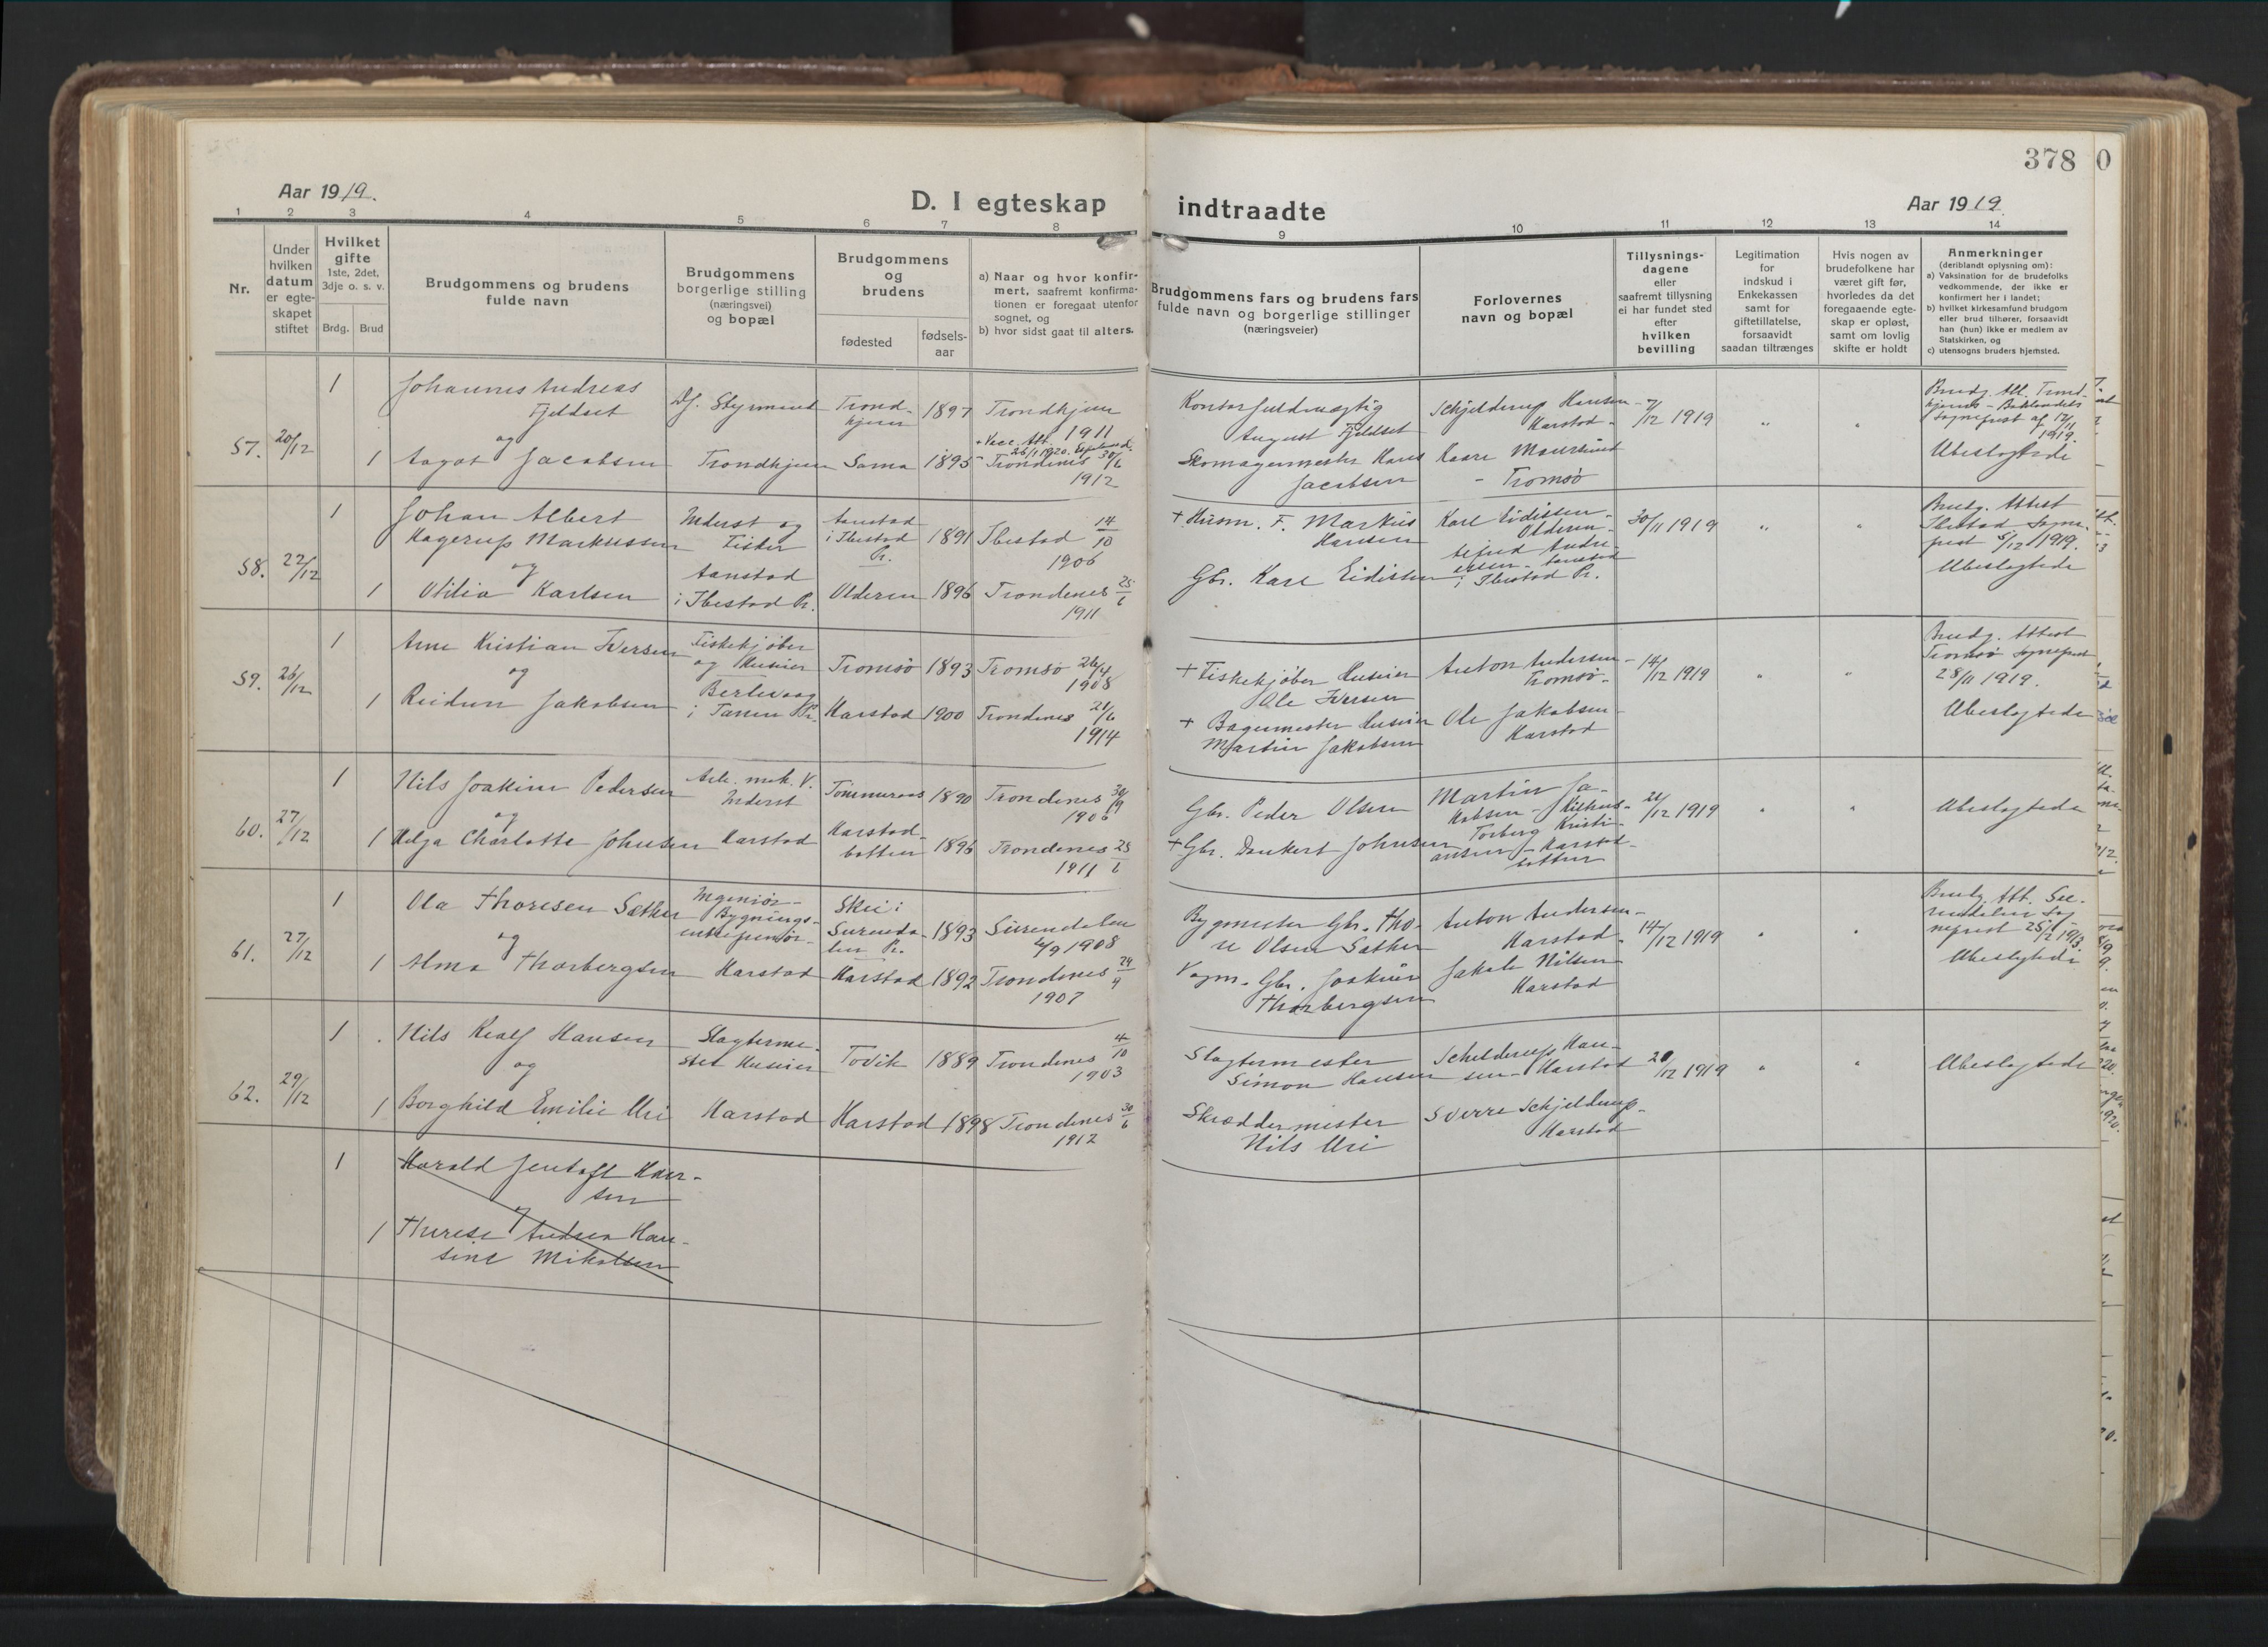 378 0
Aar 1919.
D. I egteskap
indtraadte
Aar 1919.
1 2 3 4 5 6 7 8
9 10 11 12 13 14
Nr.
Under
hvilken
datum
er egte-
skapet
stiftet
Hvilket
gifte
1ste, 2det,
3dje o. s. v.
Brdg. Brud
Brudgommens og brudens
fulde navn
Brudgommens
borgerlige stilling
(næringsvei)
og bopæl
Brudgommens
og
brudens
fødested
fødsels-
aar
a) Naar og hvor konfir-
mert, saafremt konfirma-
tionen er foregaat utenfor
sognet, og
b) hvor sidst gaat til alters.
Brudgommens fars og brudens fars
fulde navn og borgerlige stillinger
(næringsveier)
Forlovernes
navn og bopæl
Tillysnings-
dagene
eller
saafremt tillysning
ei har fundet sted
efter
hvilken
bevilling
Legitimation
for
indskud i
Enkekassen
samt for
giftetillatelse,
forsaavidt
saadan tiltrænges
Hvis nogen av
brudefolkene har
været gift før,
hvorledes da det
foregaaende egte-
skap er opløst,
samt om lovlig
skifte er holdt
Anmerkninger
(deriblandt oplysning om):
a) Vaksination for de brudefolks
vedkommende, der ikke er
konfirmert her i landet;
b) hvilket kirkesamfund brudgom
eller brud tilhører, forsaavidt
han (hun) ikke er medlem av
Statskirken, og
c) utensogns bruders hjemsted.
57. 20/12
1
1
Johannes Andreas
Fjeldset
og
Aagot Jacobsen
Styrmand
Trondhjem
Trond-
hjem
1897
Sama 1895
Trondhjem
1911
+ Vacc. Att.
Trondenes 30/6
1912
Kontorfuldmægtig
August Fjeldset
Skomagermester Hans
Jacobsen
Schjelderup Hansen -
Harstad -
Kaare Maursund
- Tromsø
7/12 1919
" "
Brudg. Att. Trond-
hjems - Baklandets
Sogneprest af 17/11
1919.
Ubeslegtede
58. 22/12
1
1
Johan Albert
Hagerup Markussen
og
Otilia Karlsen
Inderst og
Fisker
Aanstad
i Ibestad Pr.
Aanstad
i Ibestad
Pr.
1891
Olderen 1896
Ibestad 14/10
1906
Trondenes 25/6
1911
+ Husm. F. Markus
Hansen
Gbr. Karl Eidissen
Karl Eidissen -
Olderen -
Andre-
assen - Aanstad
i Ibestad Pr.
30/11 1919
" "
Brudg. Attest
Ibestad Sogne-
prest 5/12 1919.
Ubeslegtede
59. 26/12
1
1
Arne Kristian Iversen
og
Reidun Jakobsen
Fiskekjøber
og Huseier
Berlevaag
i Tanen Pr.
Tromsø 1893
Harstad 1900
Tromsø 26/4
1908
Trondenes 21/6
1914
+ Fiskekjøber Huseier
Ole Iversen
+ Bagermester Huseier
Martin Jakobsen
Anton Andersen -
Tromsø -
Ole Jakobsen -
Harstad
14/12 1919
" "
Brudg. Attest
Tromsø Sogneprest
28/11 1919.
Ubeslegtede
60. 27/12
1
1
Nils Joakim Pedersen
og
Helga Charlotte Johnsen
Arb. mek. V.
Inderst
Harstad
Tömmeraas 1890
Harstad-
botten 1896
Trondenes 30/9
1906
Trondenes 25/6
1911
Gbr. Peder Olsen
+ Gbr. Dankert Johnsen
Martin Ja-
kobsen -
Torberg Kristi-
ansen - Harstad-
botten
21/12 1919
" "
Ubeslegtede
61. 27/12
1
1
Ola Thoresen Sæther
og
Alma Thorbergsen
Ingeniør -
Bygnings-
entreprenør -
Harstad
Skei i
Surenda-
len Pr. 1893
Harstad 1892
Surendalen
4/9 1908
Trondenes 29/9
1907
Bygmester Gbr. Tho-
re Olsen Sæther
Vogm. Gbr. Joakim
Thorbergsen
Anton Andersen -
Harstad -
Jakob Nilsen
Harstad
14/12 1919
" "
Brudg. Att. Su-
rendalen Sog-
neprest
Ubeslegtede
62. 29/12
1
1
Nils Realf Hansen
og
Borghild Emilie Uri
Slagterme-
ster Huseier
Harstad
Tovik 1889
Harstad 1898
Trondenes 4/10
1903
Trondenes 30/6
1912
Slagtermester
Simon Hansen
Skræddermester
Nils Uri
Schelderup Han-
sen - Harstad
Sverre Schjelderup -
Harstad
21/12 1919
" "
Ubeslegtede
1
1
Harald Jentoft Han-
sen
Therese Andrea Han-
sine Mikalsen